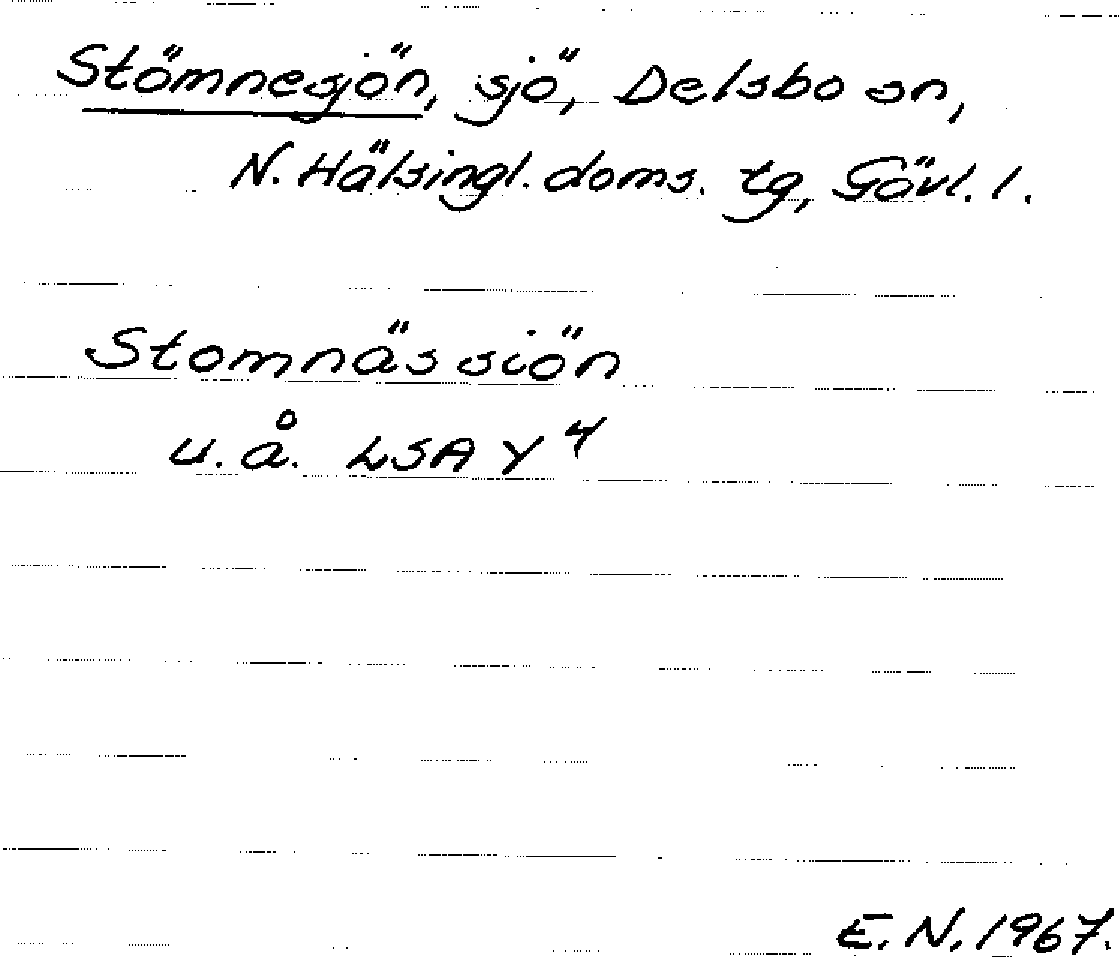 Stömnesjön, sjö, Delsbo sn,
N. Hälsingl. doms. tg, Gävl. l.
Stomnäs siön
u.å. LSA Y 4
E.N. 1967.